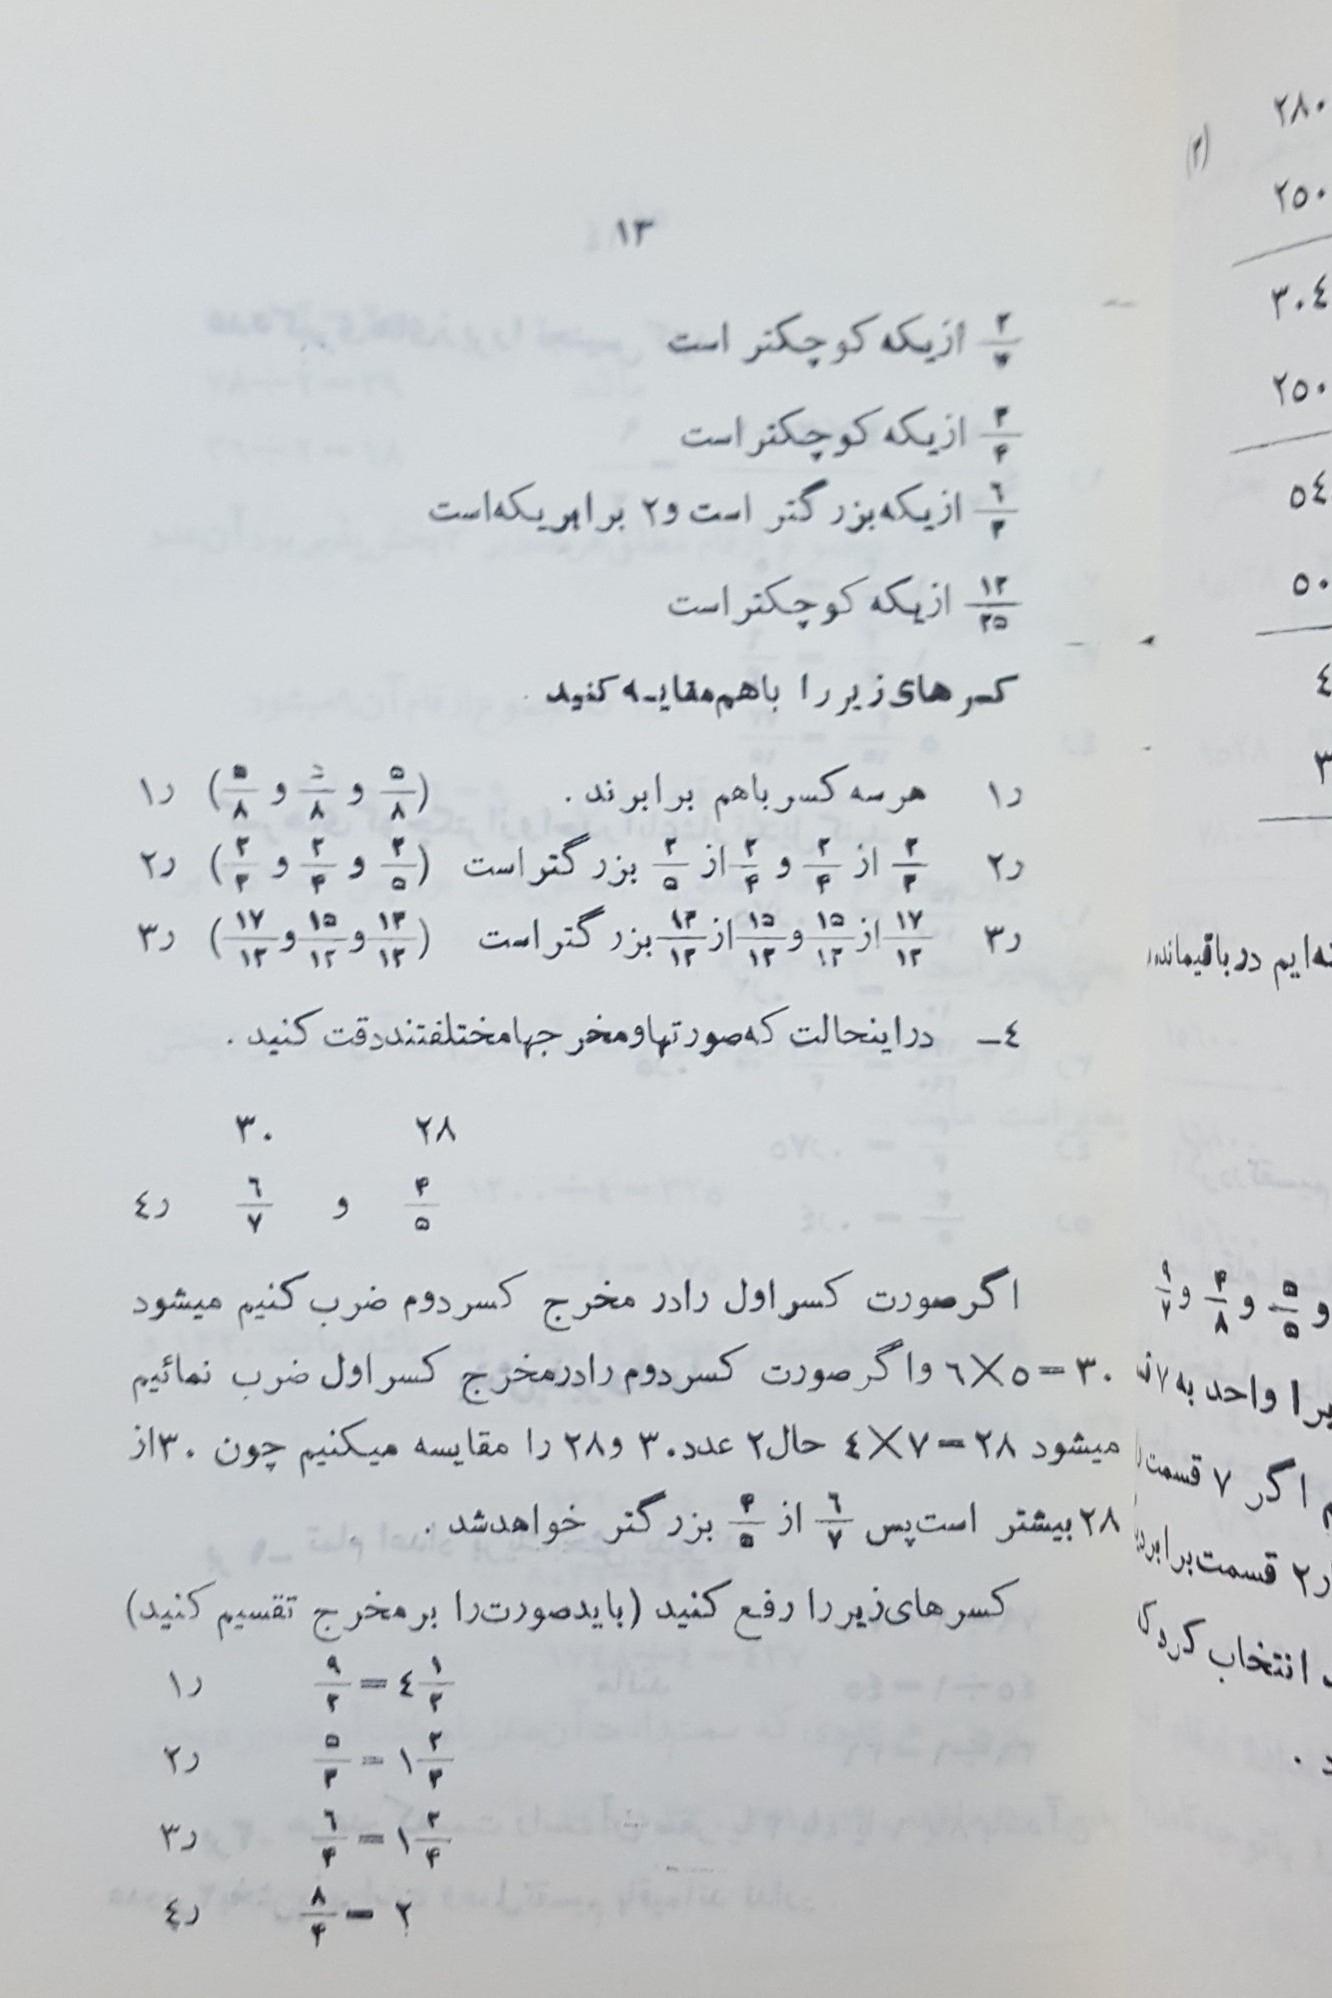 ۱۳
۲/۳ از یکه کوچکتر است
۳/۴ از یکه کوچکتر است
۶/۳ از یکه بزرگتر است و ۲ برابر یکه است
۱۲/۲۵ از یکه کوچکتر است
کسرهای زیر را باهم مقایسه کنید .
ر۱ هر سه کسر باهم برابرند . (۵/۸ و ۵/۸ و ۵/۸) ر۱
ر۲ ۲/۳ از ۲/۴ و ۲/۴ از ۲/۵ بزرگتر است (۲/۵ و ۲/۴ و ۲/۳) ر۲
ر۳ ۱۷/۱۲ از ۱۵/۱۲ و ۱۵/۱۲ از ۱۳/۱۲ بزرگتر است (۱۳/۱۲ و ۱۵/۱۲ و ۱۷/۱۲) ر۳
٤ــ در اینحالت که صورتها و مخرجها مختلفتند دقت کنید .
۲۸ ۳۰
۴/۵ و ۶/۷ ر٤
اگر صورت کسر اول را در مخرج کسر دوم ضرب کنیم میشود
۳۰=۵×۶ و اگر صورت کسر دوم را در مخرج کسر اول ضرب نمائیم
میشود ۲۸=۷×٤ حال ۲ عدد ۳۰ و ۲۸ را مقایسه میکنیم چون ۳۰ از
۲۸ بیشتر است پس ۶/۷ از ۴/۵ بزرگتر خواهد شد .
کسرهای زیر را رفع کنید (باید صورت را بر مخرج تقسیم کنید)
ر۱ ۹/۲ = ٤ ۱/۲
ر۲ ۵/۳ = ۱ ۲/۳
ر۳ ۶/۴ = ۱ ۲/۴
ر٤ ۸/۴ = ۲
۲۸۰
(۲)
۲۵۰
۳۰٤
۲۵۰
۵٤
۵۰
٤
۳
ه ایم در باقیمانده
و ۵/۵ و ۴/۸ و ۹/۷
یرا واحد به ۷
اگر ۷ قسمت
ر۲ قسمت برابر
انتخاب کرد